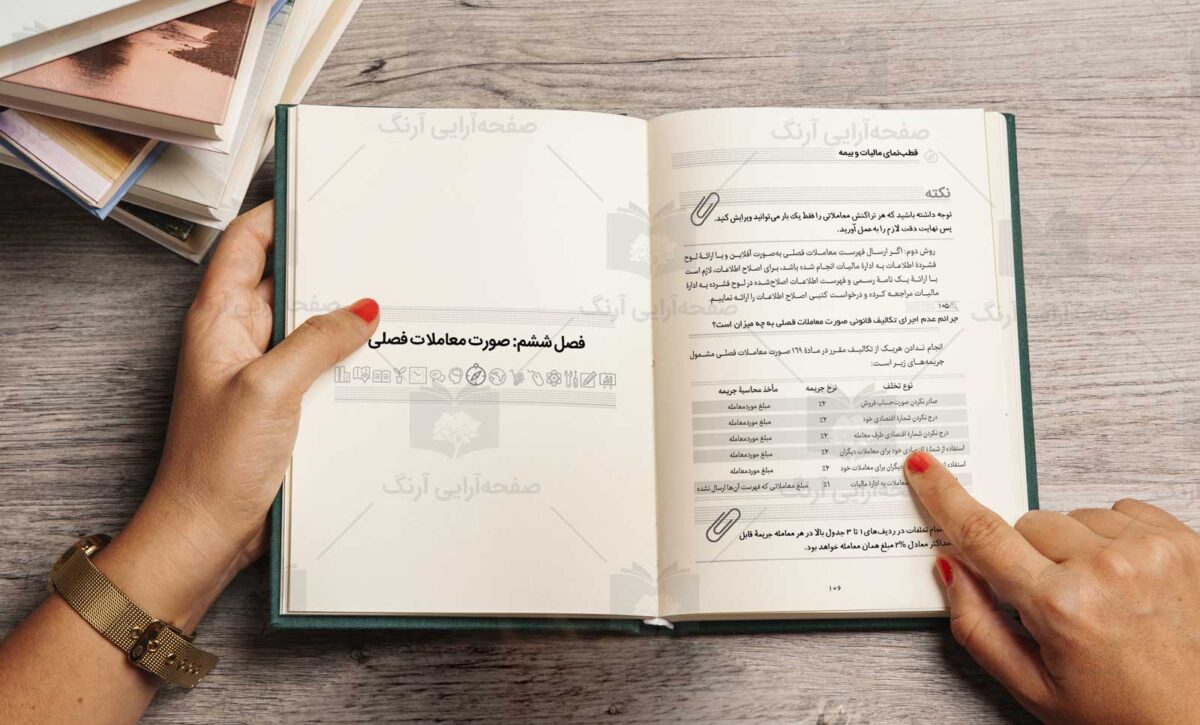 قطب‌نمای مالیات و بیمه
نکته
توجه داشته باشید که هر تراکنش معاملاتی را فقط یک بار می‌توانید ویرایش کنید.
پس نهایت دقت لازم را به عمل آورید.
روش دوم: اگر ارسال فهرست معاملات فصلی به‌صورت آفلاین و با ارائهٔ لوح
فشردهٔ اطلاعات به ادارهٔ مالیات انجام شده باشد، برای اصلاح اطلاعات، لازم است
با ارائهٔ یک نامهٔ رسمی و فهرست اطلاعات اصلاح‌شده در لوح فشرده به ادارهٔ
مالیات مراجعه کرده و درخواست کتبی اصلاح اطلاعات را ارائه نماییم.
۱۰۵
جرائم عدم اجرای تکالیف قانونی صورت معاملات فصلی به چه میزان است؟
انجام ندادن هریک از تکالیف مقرر در مادهٔ ۱۶۹ صورت معاملات فصلی مشمول
جریمه‌های زیر است:
نوع تخلف نرخ جریمه مأخذ محاسبهٔ جریمه
صادر نکردن صورت‌حساب فروش ۲٪ مبلغ موردمعامله
درج نکردن شمارهٔ اقتصادی خود ۲٪ مبلغ موردمعامله
درج نکردن شمارهٔ اقتصادی طرف معامله ۲٪ مبلغ موردمعامله
استفاده از شمارهٔ اقتصادی خود برای معاملات دیگران ۲٪ مبلغ موردمعامله
استفاده از دیگران برای معاملات خود ۲٪ مبلغ موردمعامله
معاملات به ادارهٔ مالیات ۱٪ مبلغ معاملاتی که فهرست آن‌ها ارسال نشده
تخلفات در ردیف‌های ۱ تا ۳ جدول بالا در هر معامله جریمهٔ قابل
حداکثر معادل ۲% مبلغ همان معامله خواهد بود.
۱۰۶
فصل ششم: صورت معاملات فصلی
صفحه‌آرایی آرنگ
صفحه‌آرایی آرنگ
صفحه‌آرایی آرنگ
صفحه‌آرایی آرنگ